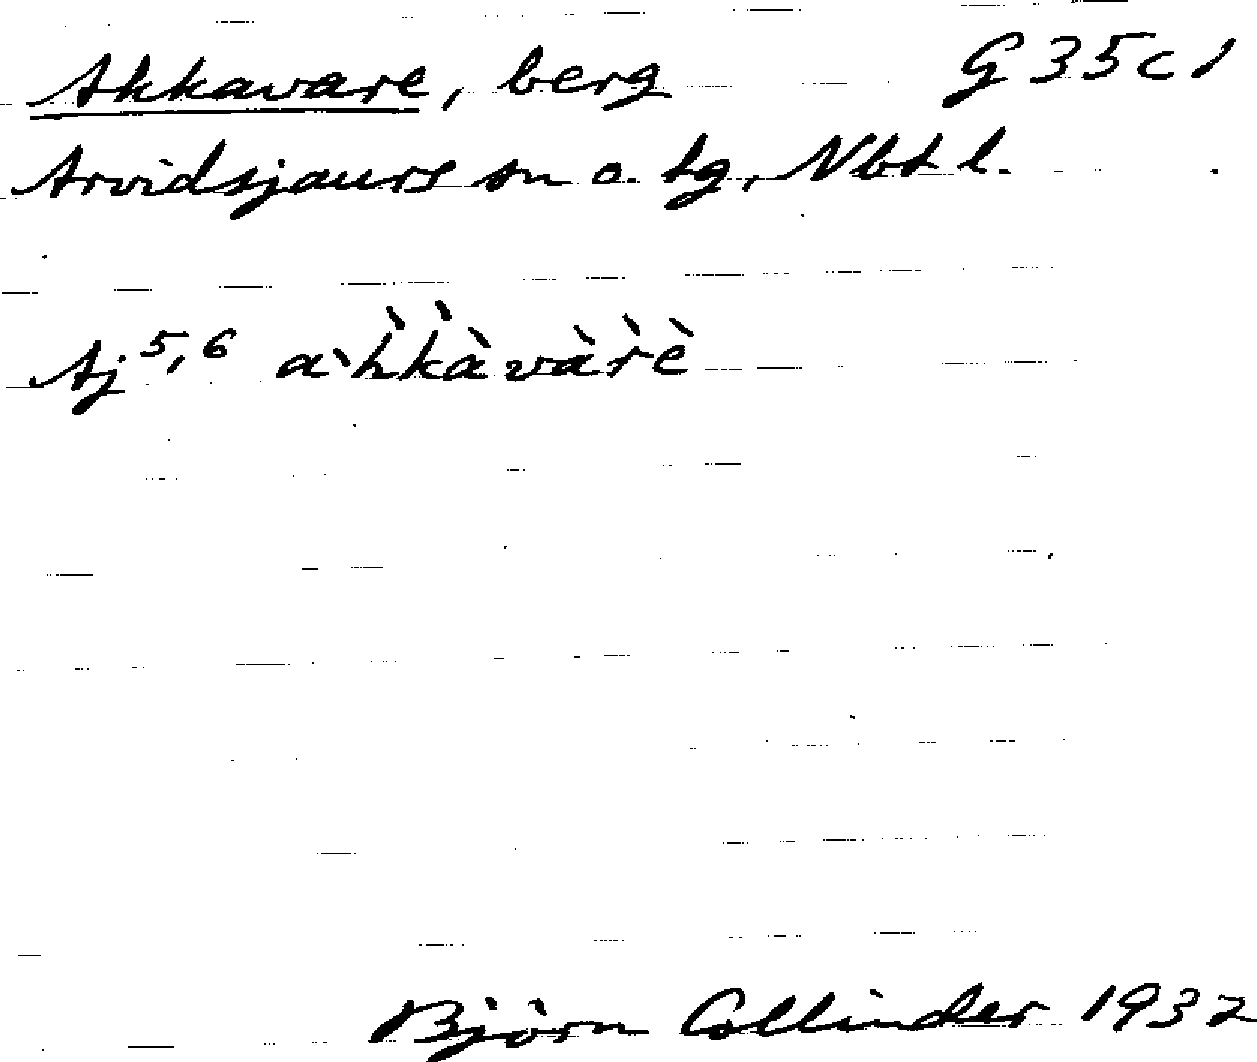 Akkavare, berg G 35 c 1
Arvidsjaurs sn o. tg, Nbt l.
Aj 5,6 
Björn Collinder 1932